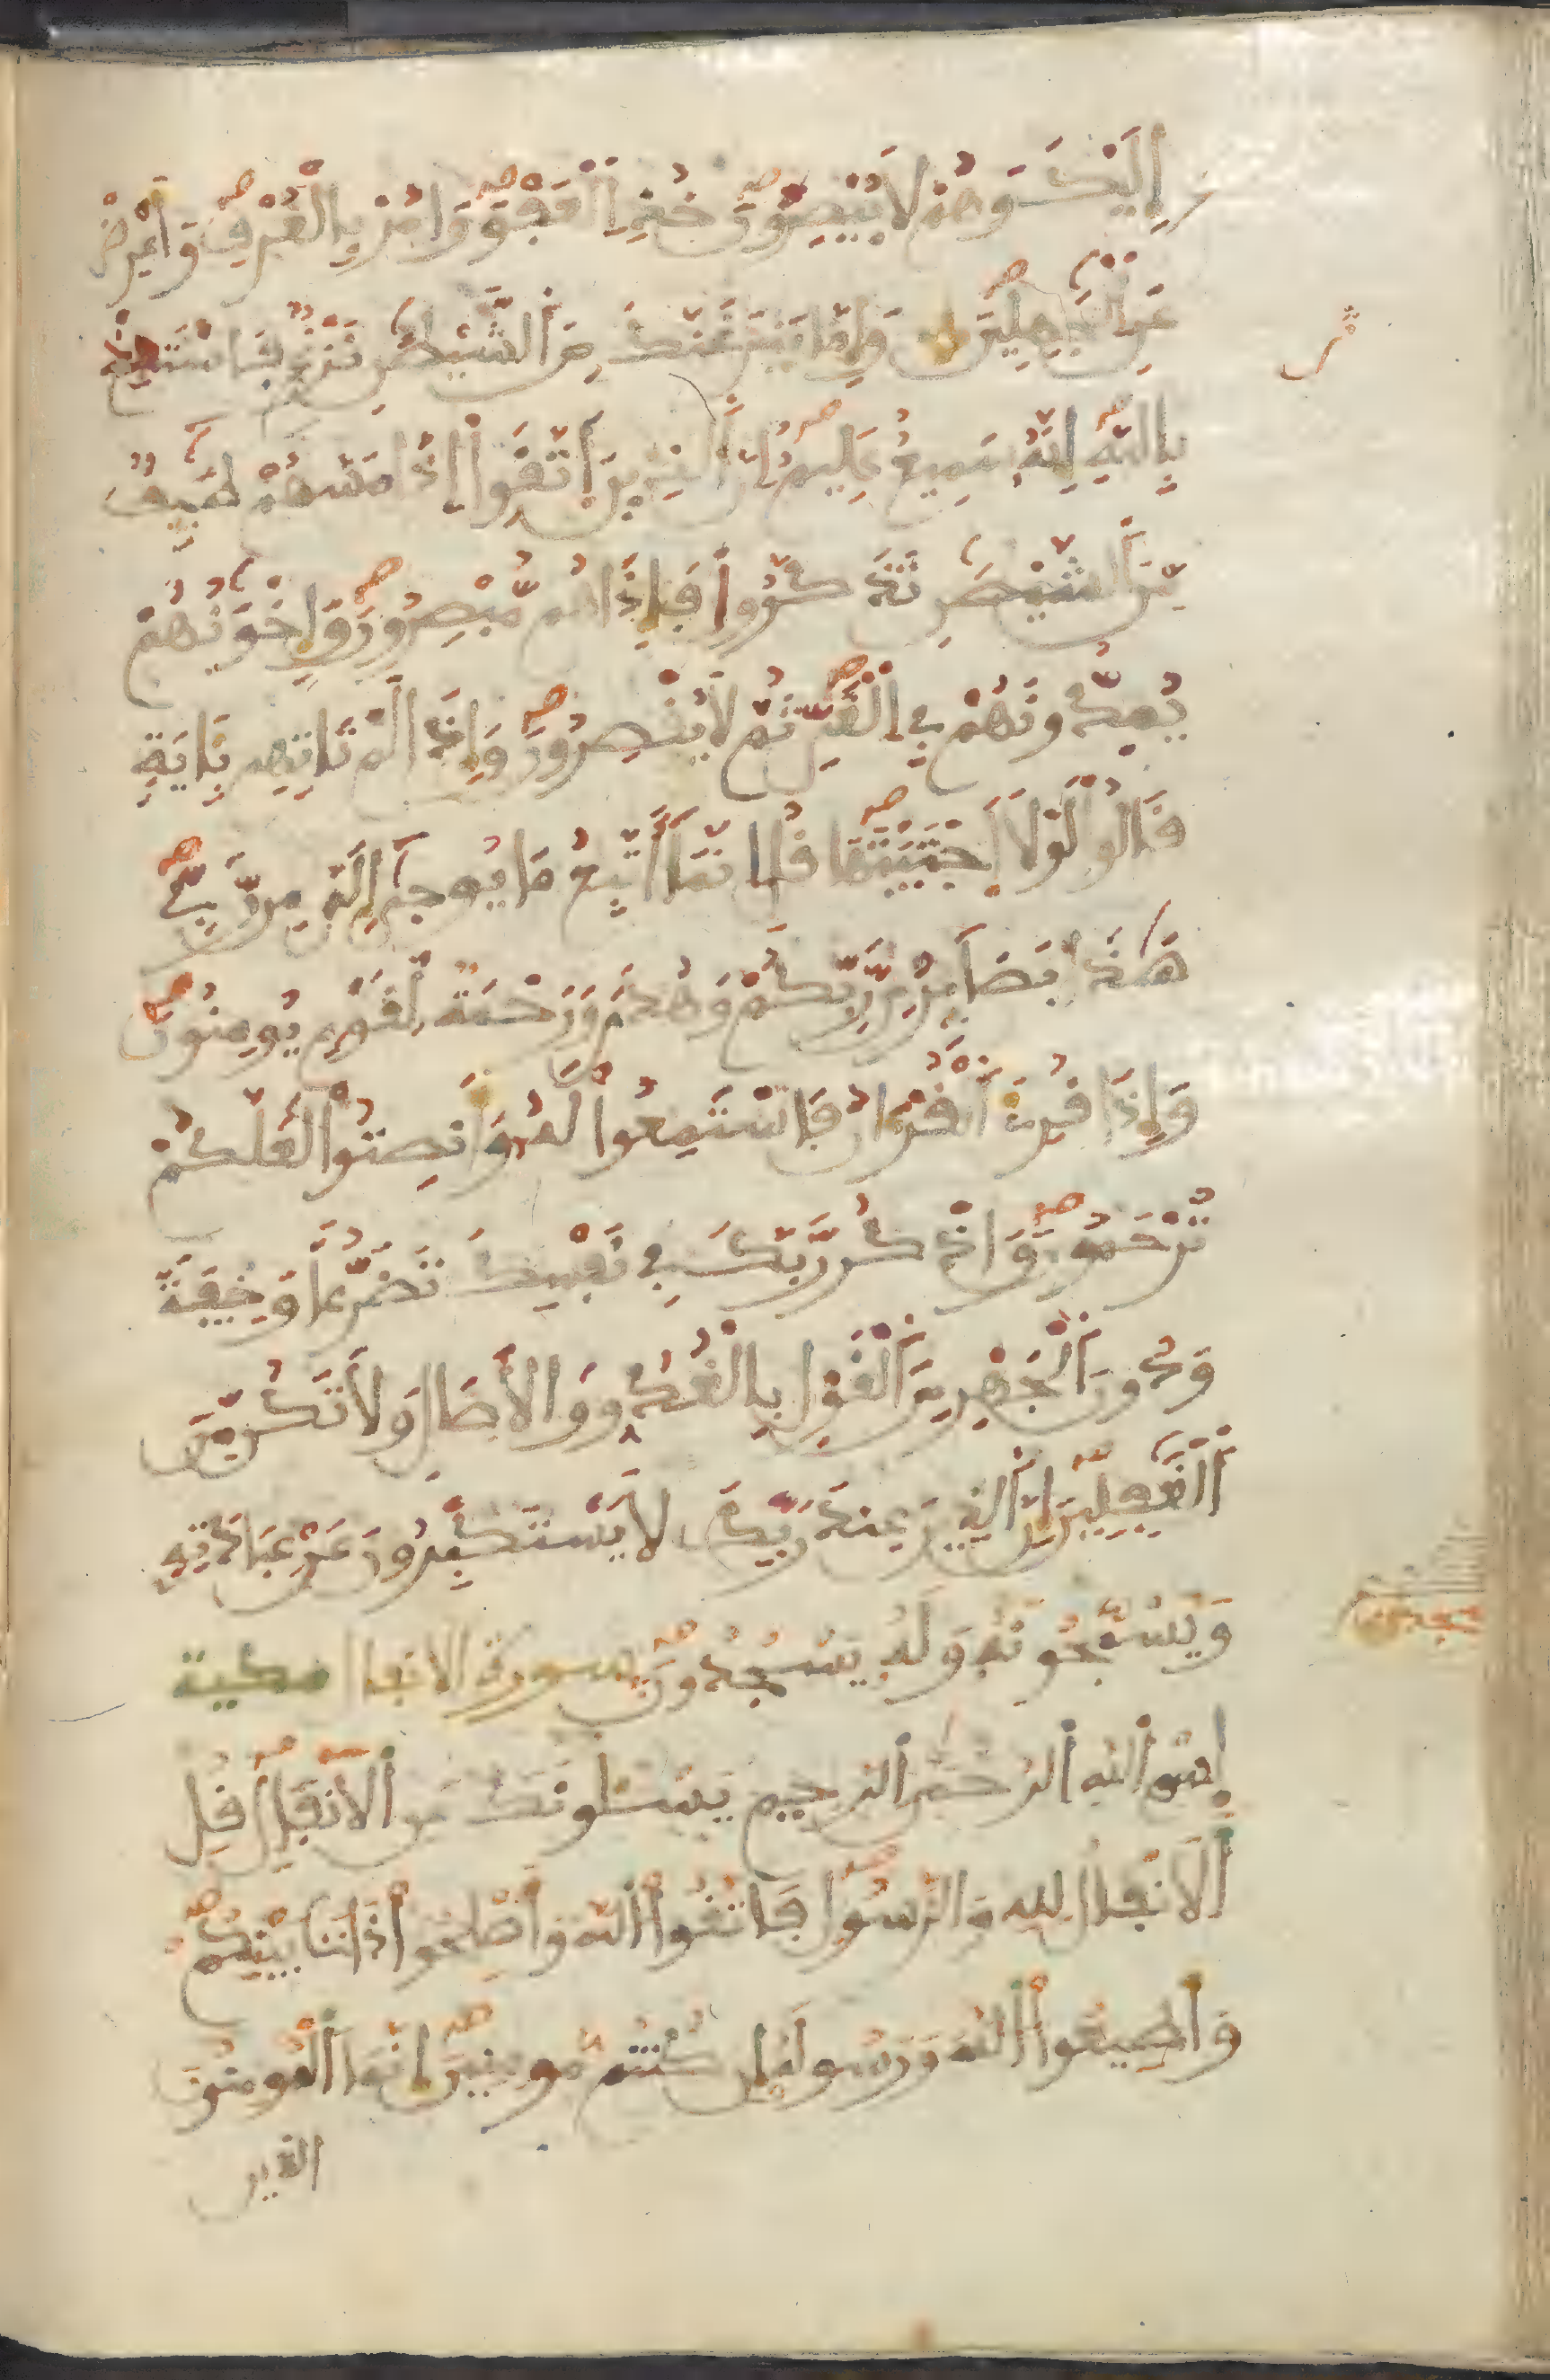 إِلَيْكَ وَهُمْ لَا يُبْصِرُونَ خُذِ الْعَفْوَ وَامُرْ بِالْعُرْفِ وَأَعْرِضْ
عَنِ الْجَٰهِلِينَ وَإِمَّا يَنزَغَنَّكَ مِنَ الشَّيْطَٰنِ نَزْغٌ فَاسْتَعِذْ
بِاللَّهِ إِنَّهُ سَمِيعٌ عَلِيمٌ إِنَّ الَّذِينَ اتَّقَوْا إِذَا مَسَّهُمْ طَٰٓئِفٌ
مِّنَ الشَّيْطَٰنِ تَذَكَّرُوا فَإِذَا هُم مُّبْصِرُونَ وَإِخْوَٰنُهُمْ
يُمِدُّونَهُمْ فِي الْغَيِّ ثُمَّ لَا يُقْصِرُونَ وَإِذَا لَمْ تَاتِهِم بِـَٔايَةٍ
قَالُوا لَوْلَا اجْتَبَيْتَهَا قُلِ انَّمَا أَتَّبِعُ مَا يُوحَىٰ إِلَيَّ مِن رَّبِّي
هَٰذَا بَصَآئِرُ مِن رَّبِّكُمْ وَهُدًى وَرَحْمَةٌ لِّقَوْمٍ يُومِنُونَ
وَإِذَا قُرِئَ الْقُرْءَانُ فَاسْتَمِعُوا لَهُ وَأَنصِتُوا لَعَلَّكُمْ
تُرْحَمُونَ وَاذْكُر رَّبَّكَ فِي نَفْسِكَ تَضَرُّعًا وَخِيفَةً
وَدُونَ الْجَهْرِ مِنَ الْقَوْلِ بِالْغُدُوِّ وَالْأَصَالِ وَلَا تَكُن مِّنَ
الْغَٰفِلِينَ إِنَّ الَّذِينَ عِندَ رَبِّكَ لَا يَسْتَكْبِرُونَ عَنْ عِبَادَتِهِ
وَيُسَبِّحُونَهُ وَلَهُ يَسْجُدُونَ سورة الانفال مكية
بِسْمِ اللَّهِ الرَّحْمَٰنِ الرَّحِيمِ يَسْـَٔلُونَكَ عَنِ الْأَنفَالِ قُلِ
الْأَنفَالُ لِلَّهِ وَالرَّسُولِ فَاتَّقُوا اللَّهَ وَأَصْلِحُوا ذَاتَ بَيْنِكُمْ
وَأَطِيعُوا اللَّهَ وَرَسُولَهُ إِن كُنتُم مُّومِنِينَ إِنَّمَا الْمُومِنُونَ
الذين